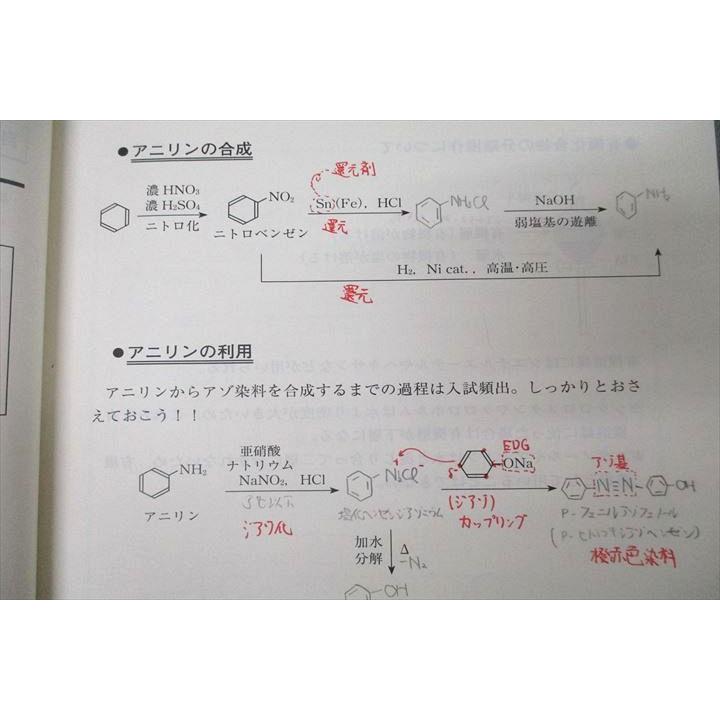 ●アニリンの合成
還元剤
濃 HNO₃
濃 H₂SO₄
ニトロ化
NO₂
ニトロベンゼン
Sn(Fe), HCl
還元
NaOH
弱塩基の遊離
NH₂
H₂, Ni cat., 高温・高圧
還元
●アニリンの利用
アニリンからアゾ染料を合成するまでの過程は入試頻出。しっかりとおさ
えておこう！！
NH₂
アニリン
亜硝酸
ナトリウム
NaNO₂, HCl
5℃以下
ジアゾ化
塩化ベンゼンジアゾニウム
EDG
δ-
ONa
(ジアゾ)
カップリング
アゾ基
OH
p-フェニルアゾフェノール
(p-ヒドロキシアゾベンゼン)
橙赤色染料
加水
分解
Δ
-N₂
OH